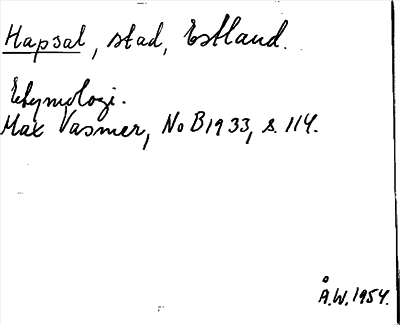 Hapsal, stad, Estland.
Etymologi.
Max Vasmer, NoB 1933, s. 114.
Å.W. 1954.